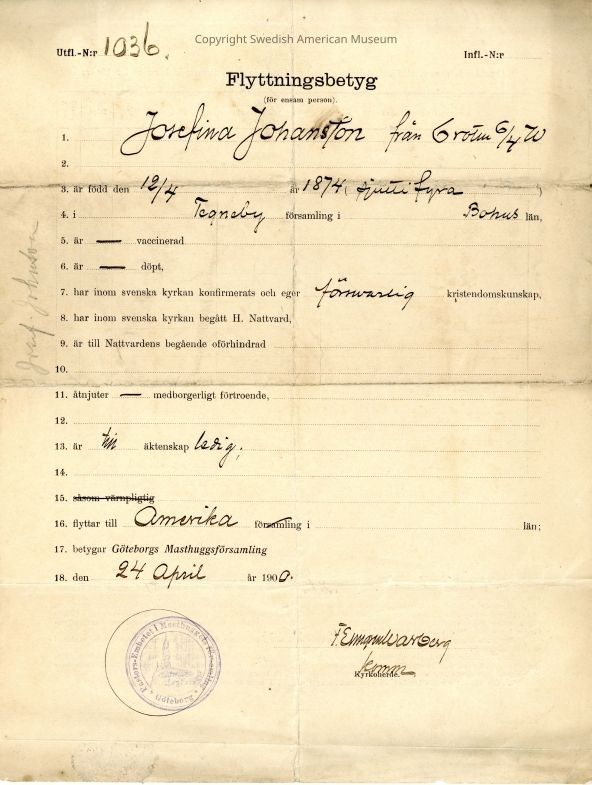 Copyright Swedish American Museum
Utfl.-N:r 1036. Infl.-N:r
Flyttningsbetyg
(för ensam person).
1. Josefina Johansson från 6 rote
2.
3. är född den 12/4 år 1874 (sjutti fyra )
4. i Tegneby församling i Bohus län,
5. är — vaccinerad
6. är — döpt,
7. har inom svenska kyrkan konfirmerats och eger försvarlig kristendomskunskap,
8. har inom svenska kyrkan begått H. Nattvard,
9. är till Nattvardens begående oförhindrad
10.
11. åtnjuter — medborgerligt förtroende,
12.
13. är till äktenskap ledig,
14.
15. såsom värnpligtig
16. flyttar till Amerika församling i län;
17. betygar Göteborgs Masthuggsförsamling
18. den 24 April år 1900.
Pastors-Embetet i Masthuggets församling
Göteborg
Komm.
Kyrkoherde.
Josef Johnson